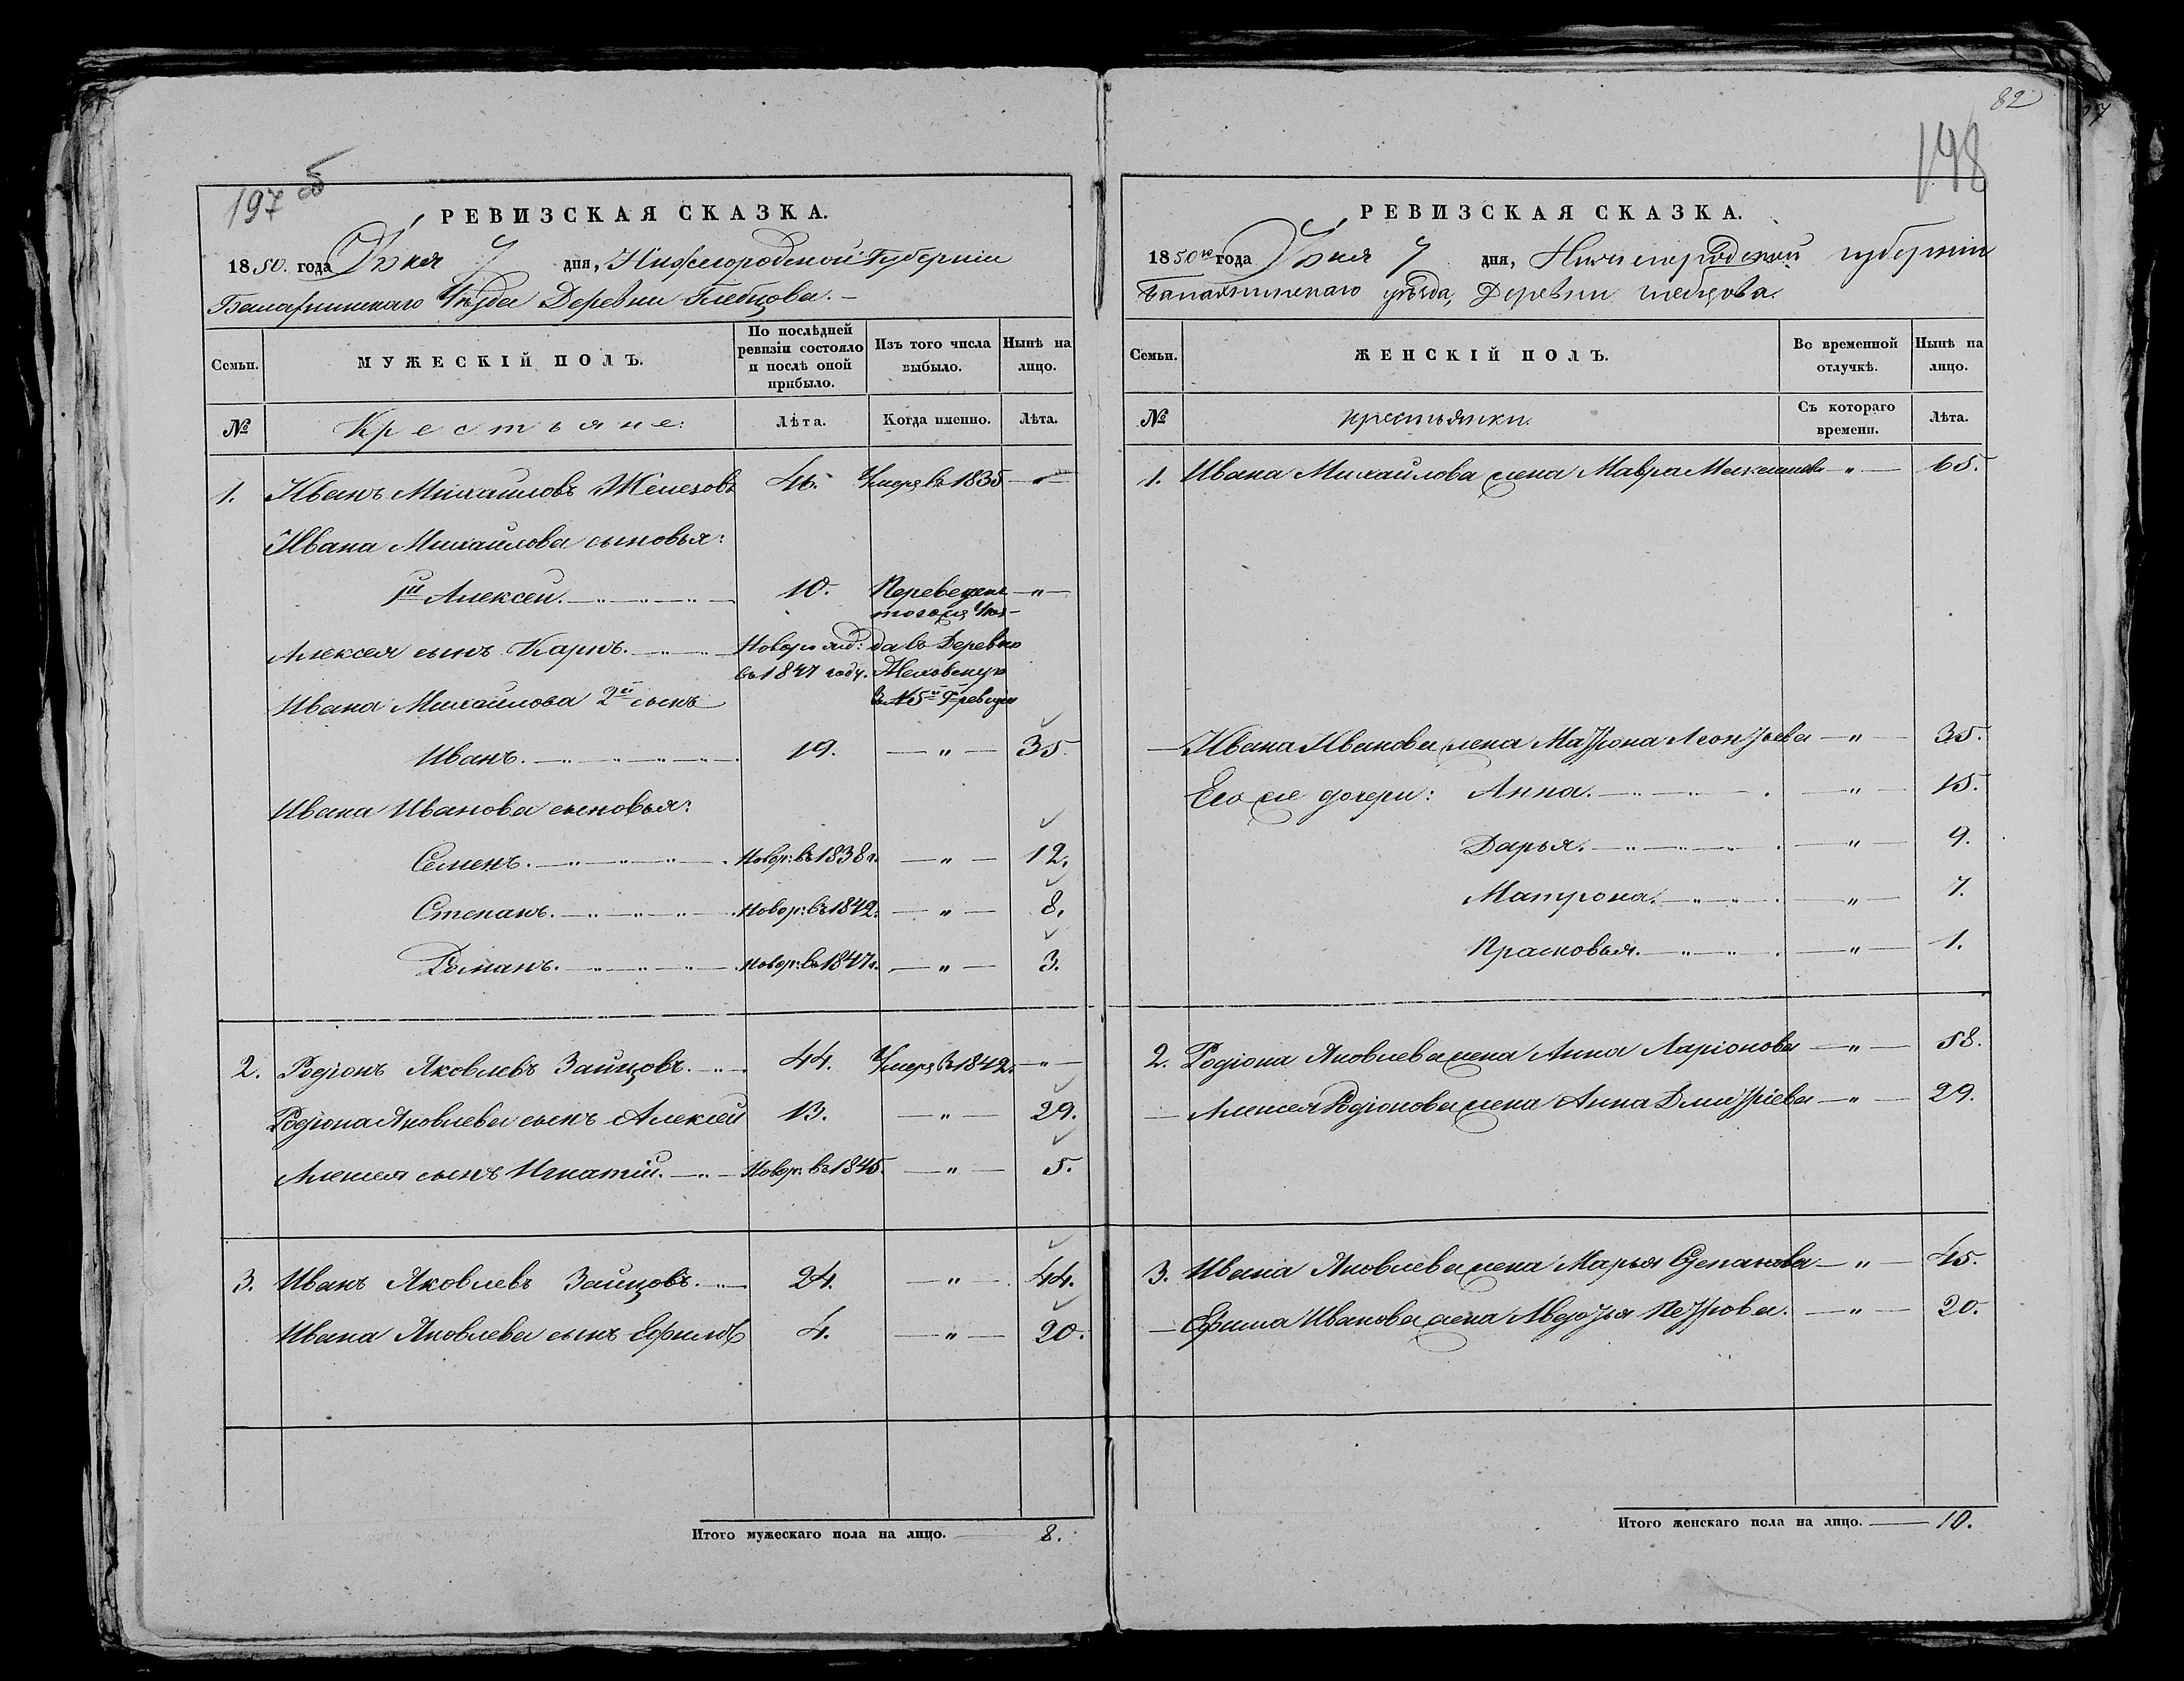 197 об
РЕВИЗСКАЯ СКАЗКА.
1850. года Іюня 7 дня, Нижегородской Губерніи
Балахнинскаго Уѣзда Деревни Глебцова.
Семьи.
МУЖЕСКІЙ ПОЛЪ.
По послѣдней ревизіи состояло и послѣ оной прибыло.
Изъ того числа выбыло.
Нынѣ на лицо.
№
Крестьяне:
Лѣта.
Когда именно.
Лѣта.
1. Иванъ Михаиловъ 46. Умеръ въ 1835 — " —
Ивана Михаилова сыновья:
1й Алексей. 10. Переведенъ — " —
тогоже Уѣз-
Алексея сынъ Карпъ.Новорожд: да въ Деревню
въ 1847 году.
Ивана Михаилова 2й сынъ
Иванъ. 19. — " — 35.
Ивана Иванова сыновья:
Семенъ. Новор: въ 1838 г. — " — 12.
Степанъ. Новор: въ 1842. — " — 8.
Романъ. Новор: въ 1847 г. — " — 3.
2. Родіонъ Яковлевъ Зайцовъ. 44. Умеръ въ 1842. — " —
Родіона Яковлева сынъ Алексей 13. — " — 29.
Алексея сынъ Игнатій. Новор: въ 1845. — " — 5.
3. Иванъ Яковлевъ Зайцовъ. 24. — " — 44.
Ивана Яковлева сынъ Ефимъ 4. — " — 20.
Итого мужескаго пола на лицо. 8.
82
198
РЕВИЗСКАЯ СКАЗКА.
1850го года Іюня 7 дня, Нижегородской губерніи
Балахнинскаго уѣзда, Деревни Глебцова.
Семьи.
ЖЕНСКІЙ ПОЛЪ.
Во временной отлучкѣ.
Нынѣ на лицо.
№
Крестьянки.
Съ котораго времени.
Лѣта.
1. Ивана Михайлова жена Мавра — " — 65.
Ивана Иванова жена Матрона Леонтьева — " — 35.
Его же дочери: Анна. — " — 15.
Дарья. — " — 9.
Матрона. — " — 7.
Прасковья. — " — 1.
2. Родіона Яковлева жена Анна Ларіонова — " — 58.
Алексея Родіонова жена Анна Дмитріева — " — 29.
3. Ивана Яковлева жена Марья Степанова — " — 45.
Ефима Иванова жена Авдотья Петрова. — " — 20.
Итого женскаго пола на лицо. 10.